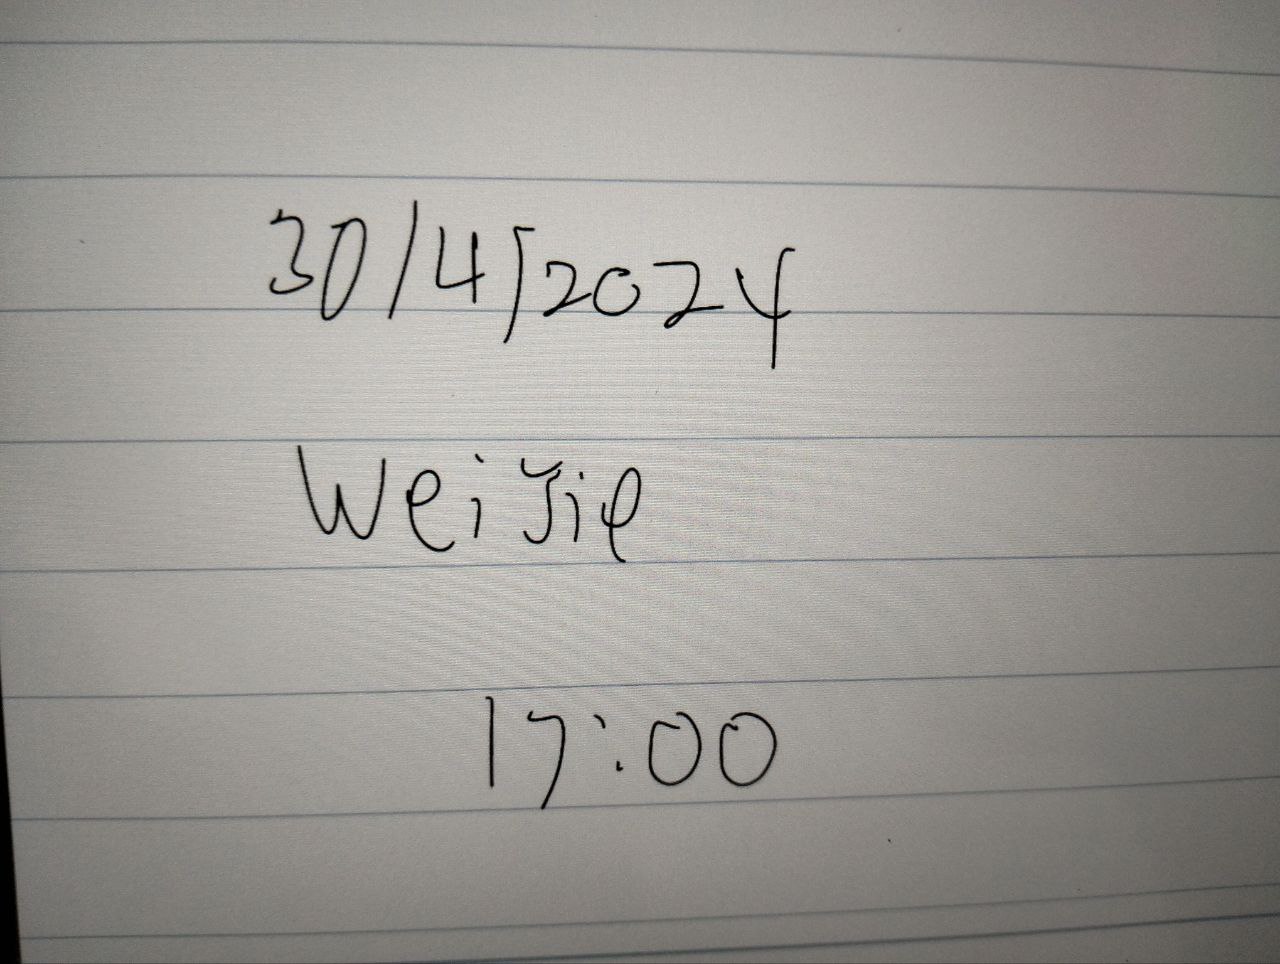 30/4/2024
Wei Jie
17:00